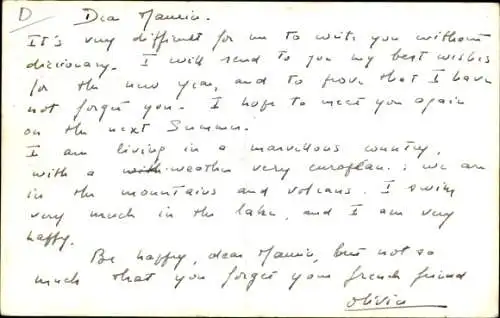 D Dear Mamia.
It's very difficult for me to write you without
dizionary. I will send to you my best wishes
for the new year, and to prove that I have
not forget you. I hope to meet you again
on the next Summer.
I am living in a marvellous country,
with a with weather very europian.: we are
in the mountains and volcans. I swim
very much in the lake, and I am very
happy.
Be happy, dear Mamia, but not so
much that you forget your french friend
Olivia